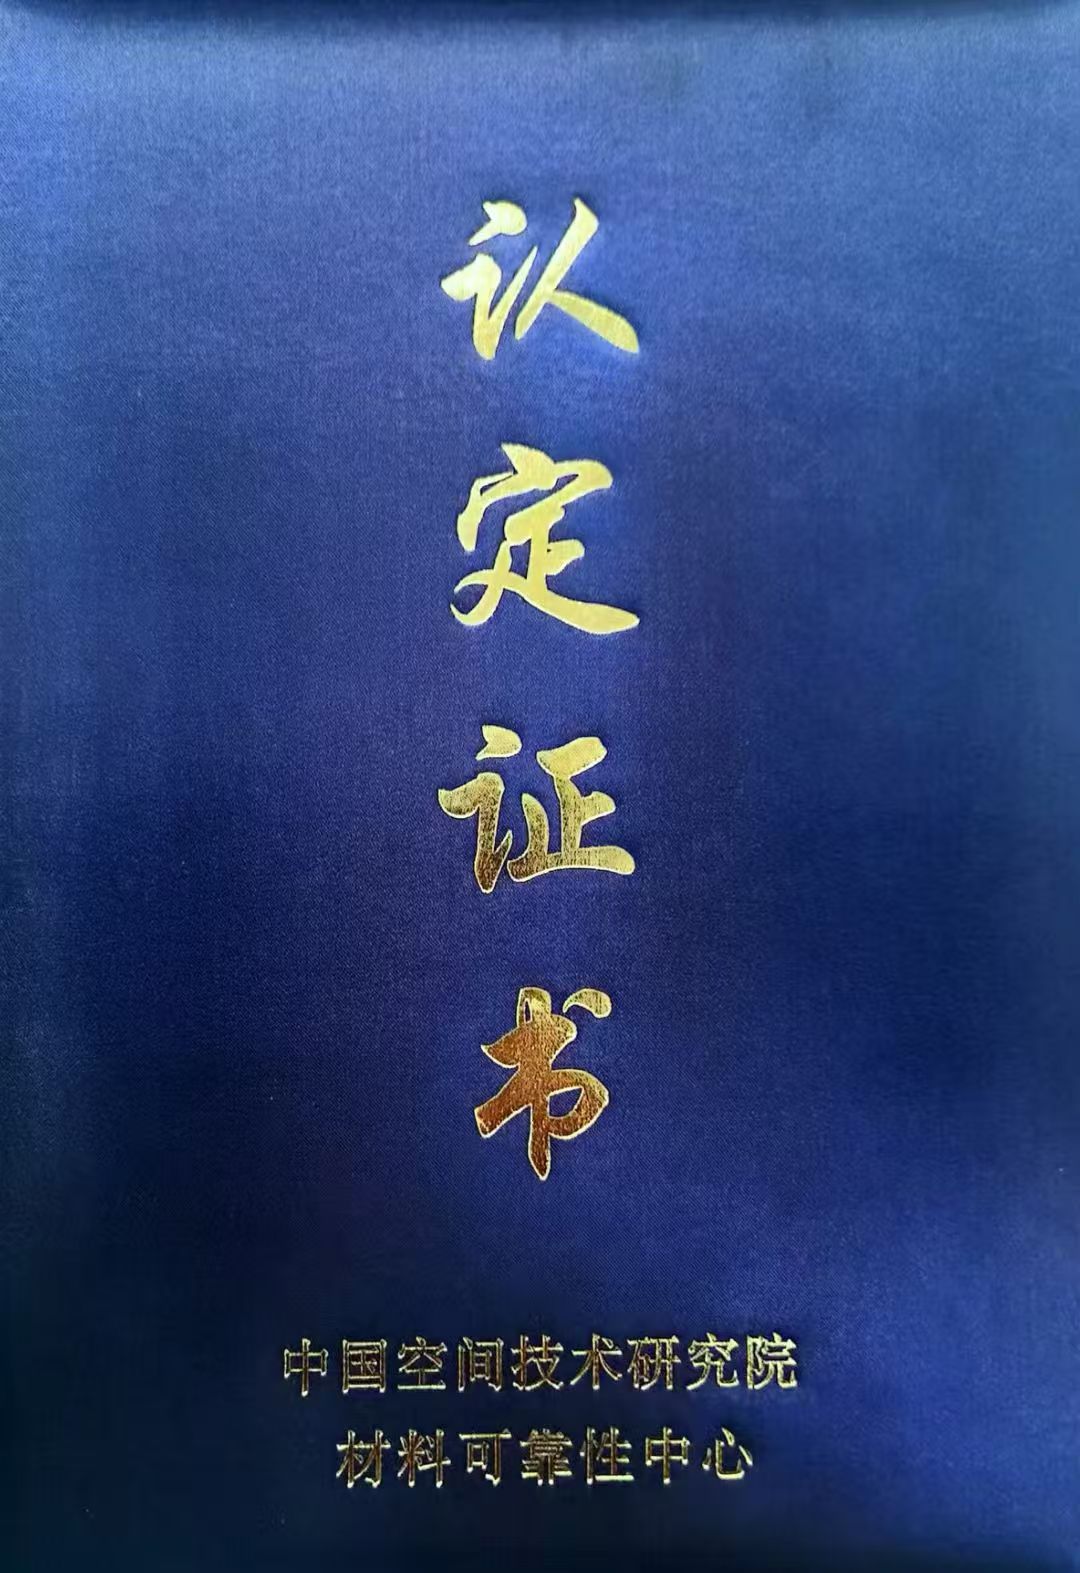 认定证书
中国空间技术研究院
材料可靠性中心